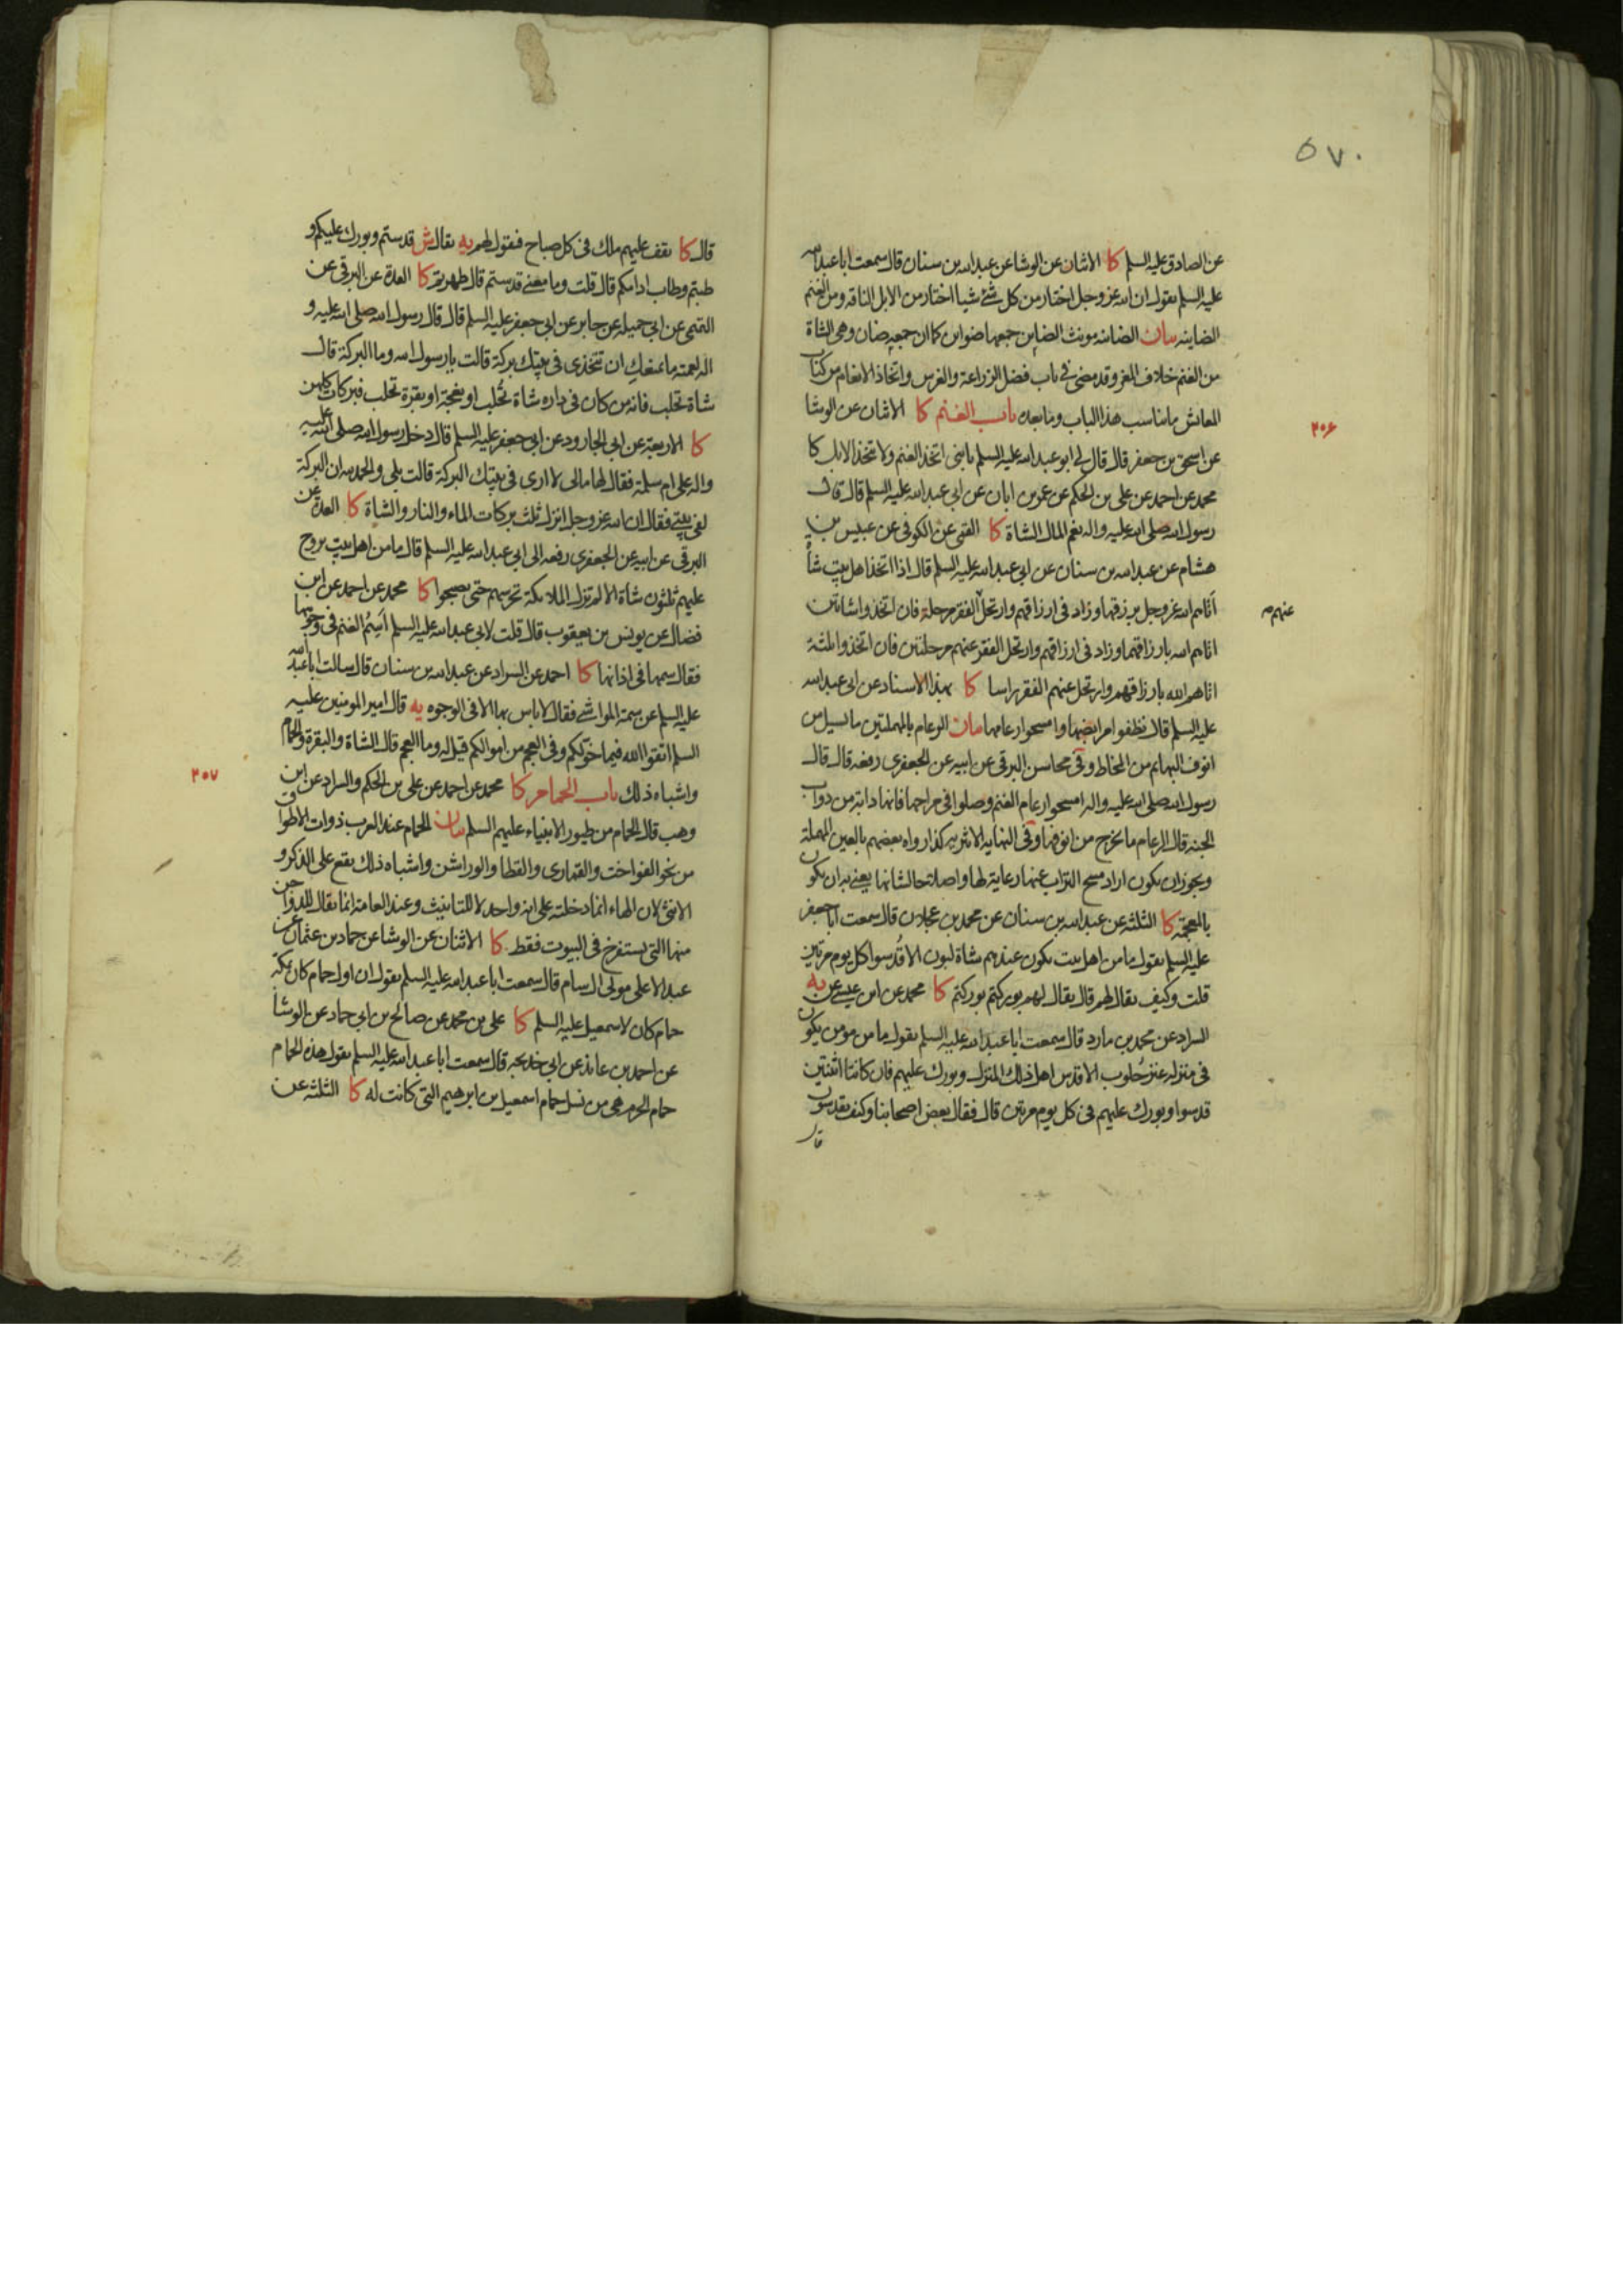 ٥٧٠
عن الصادق عليه السلم كا الاثنان عن الوشا عن عبد الله بن سنان قال سمعت ابا عبد الله
عليه السلم يقول ان الله عز وجل اختار من كل شئ شيا اختار من الابل الناقه ومن الغنم
الضاينه بيان الضاينه مونث الضاين جمعها ضواين كما ان جمعه ضان وهى الشاة
من الغنم خلاف المعز وقد مضى فى باب فضل الزراعة والغرس واتخاذ الانعام من كتاب
المعائش ما يناسب هذا الباب وما بعده باب الغنم كا الاثنان عن الوشا
٢٠۶
عن اسحق بن جعفر قال قال لى ابو عبد الله عليه السلم يا بنى اتخذ الغنم ولا تتخذ الابل كا
محمد عن احمد عن على بن الحكم عن عمر بن ابان عن ابى عبد الله عليه السلم قال قال
رسول الله صلى الله عليه واله نعم المال الشاة كا القمى عن الكوفى عن عبيس بن
هشام عن عبد الله بن سنان عن ابى عبد الله عليه السلم قال اذا اتخذ اهل بيت شاة
اتاهم الله عز وجل برزقها وزاد فى ارزاقهم وارتحل الفقر مرحلة فان اتخذوا شاتين
عنهم صـ
اتاهم الله بارزاقهما وزاد فى ارزاقهم وارتحل الفقر عنهم مرحلتين فان اتخذوا ثلثة
اتاهم الله بارزاقهم وارتحل عنهم الفقر راسا كا بهذا الاسناد عن ابى عبد الله
عليه السلم قال نظفوا مرابضها وامسحوا رعامها بيان الرعام بالمهملتين ما يسيل من
انوف البهائم من المخاط وفى محاسن البرقى عن ابيه عن الجعفرى رفعه قال قال
رسول الله صلى الله عليه واله امسحوا رعام الغنم وصلوا فى مراحها فانها دابة من دواب
الجنه قال الرعام ما يخرج من انوفها وفى النهايه الاثيريه كذا رواه بعضهم بالغين المهملة
ويجوز ان يكون اراد مسح التراب عنها رعاية لها واصلاحا لشانها يعنى به ان يكون
بالمعجمة كا الثلثه عن عبد الله بن سنان عن محمد بن عجلان قال سمعت ابا جعفر
عليه السلم يقول ما من اهل بيت يكون عندهم شاة لبون الا قُدسوا كل يوم مرتين
قلت وكيف يقال لهم قال يقال لهم بوركتم بوركتم كا محمد عن ابن عيسى عن يه
السراد عن محمد بن مارد قال سمعت ابا عبد الله عليه السلم يقول ما من مومن يكون
فى منزله عنز حلوب الا قدس اهل ذلك المنزل وبورك عليهم فان كانتا اثنتين
قدسوا وبورك عليهم فى كل يوم مرتين قال فقال بعض اصحابنا وكيف يقدسون
قال
قال كا يقف عليهم ملك فى كل صباح فيقول لهم يه يقال ش قدستم وبورك عليكم و
طبتم وطاب ادامكم قال قلت وما معنى قدستم قال طهرتم كا العدة عن البرقى عن
عن ابى جميله عن جابر عن ابى جعفر عليه السلم قال قال رسول الله صلى الله عليه و
اله لعمته ما يمنعك ان تتخذى فى بيتك بركة قالت يا رسول الله وما البركة قال
شاة تحلب فانه من كان فى داره شاة تُحلب او نعجة او بقرة تحلب فبركات كلهن
كا الاربعة عن ابى الجارود عن ابى جعفر عليه السلم قال دخل رسول الله صلى الله عليه
واله على ام سلمة فقال لها مالى لا ارى فى بيتك البركة قالت بلى والحمد لله ان البركة
لفى بيتى فقال ان الله عز وجل انزل ثلث بركات الماء والنار والشاة كا العدة عن
البرقى عن ابيه عن الجعفرى رفعه الى ابى عبد الله عليه السلم قال ما من اهل بيت يروح
عليهم ثلثون شاة الا لم تزل الملائكة تحرسهم حتى يصبحوا كا محمد عن احمد عن ابن
فضال عن يونس بن يعقوب قال قلت لابى عبد الله عليه السلم اَسِمُ الغنم فى وجوهها
فقال سمها فى اذانها كا احمد عن السراد عن عبد الله بن سنان قال سالت ابا عبد الله
عليه السلم عن سمة المواشى فقال لا باس بها الا فى الوجوه يه قال امير المومنين عليه
السلم اتقوا الله فيما خوّلكم وفى العجم من اموالكم قيل له وما العجم قال الشاة والبقرة والحمام
واشباه ذلك باب الحمام كا محمد عن احمد عن على بن الحكم والسراد عن ابن
٢٠٧
وهب قال الحمام من طيور الانبياء عليهم السلم بيان الحمام عند العرب ذوات الاطواق
من نحو الفواخت والقمارى والقطا والوراشن واشباه ذلك يقع على الذكر و
الانثى لان الهاء انما دخلته على انه واحد لا للتانيث وعند العامة انما يقال للدواجن
منها التى يستفرخ فى البيوت فقط كا الاثنان عن الوشا عن حماد بن عثمان عن
عبد الاعلى مولى ال سام قال سمعت ابا عبد الله عليه السلم يقول ان اول حمام كان بمكة
حمام كان لاسمعيل عليه السلم كا على بن محمد عن صالح بن ابى حماد عن الوشا
عن احمد بن عائذ عن ابى خديجه قال سمعت ابا عبد الله عليه السلم يقول هذه الحمام
حمام الحرم هى من نسل حمام اسمعيل بن ابرهيم التى كانت له كا الثلثه عن